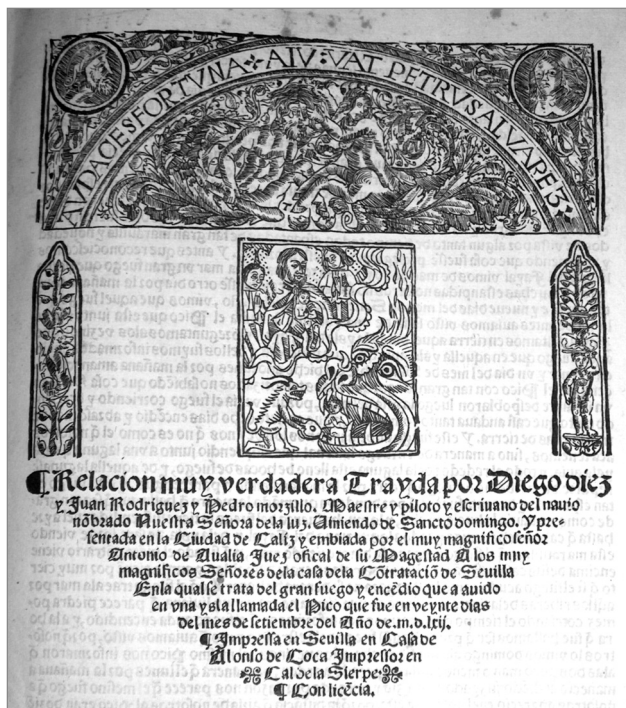 AVDACESFORTVNA AIV VAT PETRVSALVAREZ
¶ Relacion muy verdadera Trayda por Diego diez
y Juan Rodriguez y Pedro morzillo. Maestre y piloto y escriuano del nauio
nõbrado Nuestra Señora de la luz. Viniendo de Sancto domingo. Y pre-
sentada en la Ciudad de Caliz y embiada por el muy magnifico señor
Antonio de Aualia Juez ofical de su Magestad A los muy
magnificos Señores dela casa dela Cõtrataciõ de Seuilla
Enla qual se trata del gran fuego y encẽdio que a auido
en vna ysla llamada el Pico que fue en veynte dias
del mes de setiembre del Año de .m.d.lxij.
¶ Impressa en Seuilla en Casa de
Alonso de Coca Impressor en
Cal de la Sierpe.
¶ Con licẽcia.